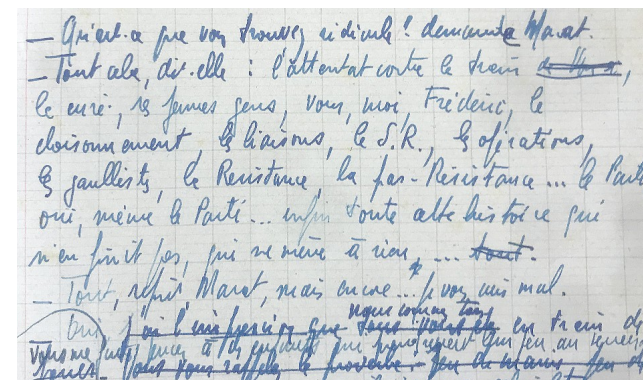 — Qu'est-ce que vous trouvez ridicule? demanda Marat.
— Tout cela, dit-elle : l'attentat contre le train
le curé, ses jeunes gens, vous, moi, Frédéric, le
cloisonnement, les liaisons, le S.R., les opérations,
les gaullistes, la Résistance, la pas-Résistance... le Parti
oui, même le Parti... enfin toute cette histoire qui
n'en finit pas, qui ne mène à rien, .... tout.
— Tout, reprit Marat, mais encore... je vous suis mal.
Oui j'ai l'impression que nous sommes tous en train de
Vous me faites penser à des enfants qui qui jeu
vous vous rappelez le proverbe - jeu de mains - jeu de